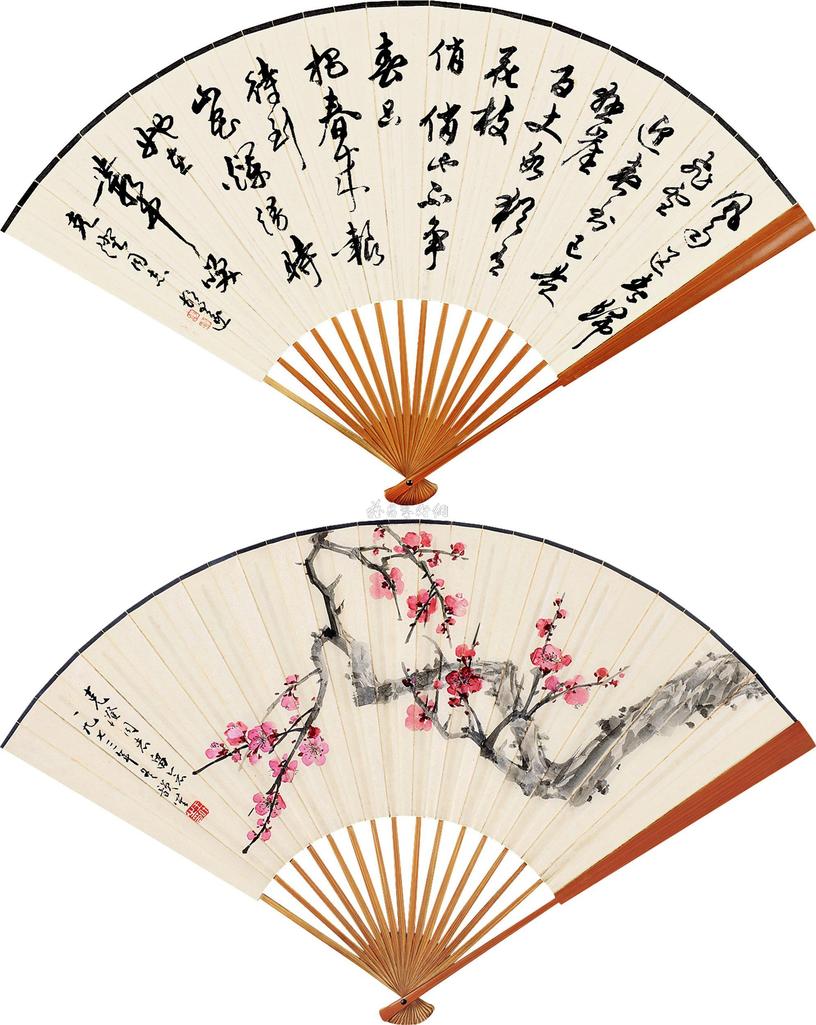 风雨送春归
飞雪
迎春到已是
悬崖
百丈冰犹有
花枝
俏俏也不争
春只
把春来报
待到
山花烂漫时
她在
丛中笑
克澄同志
克澄同志留念
一九七三年